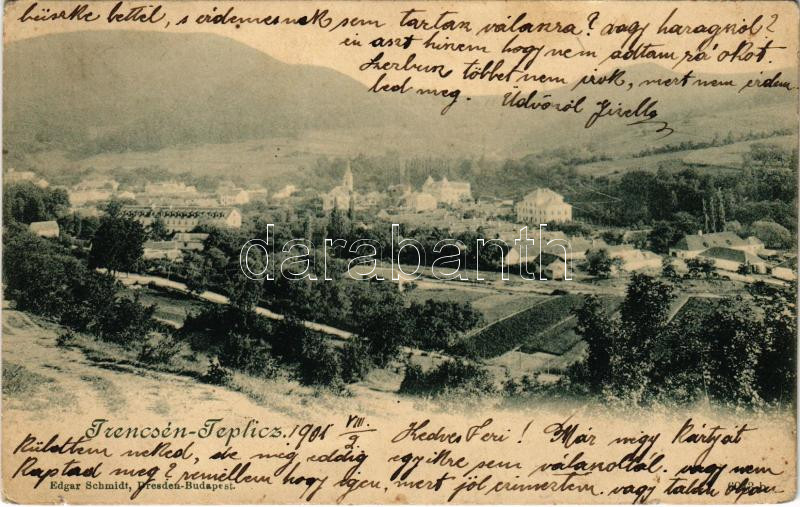 büszke bettél, s érdemesnek sem tartan válanra? vagy haragnól?
én aszt hinem hogy nem adtam rá okot.
Szerbuk többet nem irok, mert nem érdem
led meg. Üdvözöl Gizella
darabanth
Trencsén-Teplicz. 1901 VIII. 9. Kedves Feri! Már négy Kártyát
Küldtem neked, de meg eddig egyikre sem válanoltál. vagy nem
Kaptad meg? reméllem hogy igen, mert jól czimeztem. vagy talán olyan
Edgar Schmidt, Dresden-Budapest.